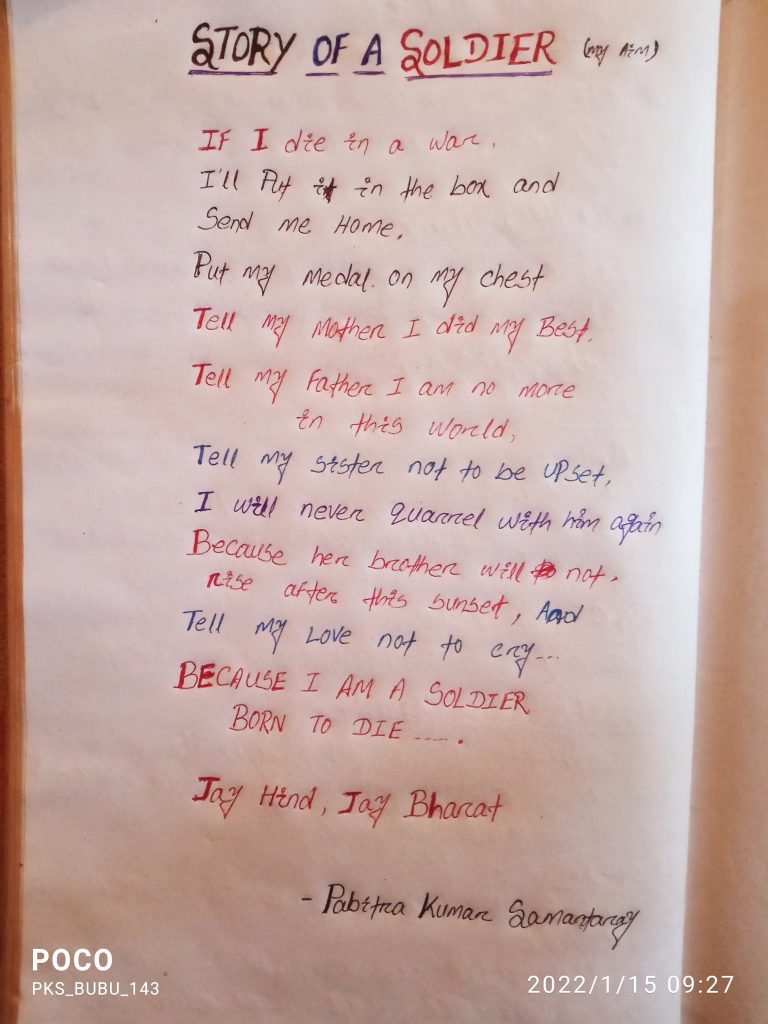 STORY OF A SOLDIER (my Aim)
If I die in a war.
I'll Put it in the box and
Send me Home.
Put my medal. on my chest
Tell my Mother I did my Best.
Tell my Father I am no more
in this world,
Tell my sister not to be upset,
I will never quarrel with him again
Because her brother will not.
rise after this sunset, And
Tell my Love not to cry...
BECAUSE I AM A SOLDIER
BORN TO DIE .... .
Jay Hind, Jay Bharat
- Pabitra Kumar Samantaray
POCO
PKS_BUBU_143
2022/1/15 09:27